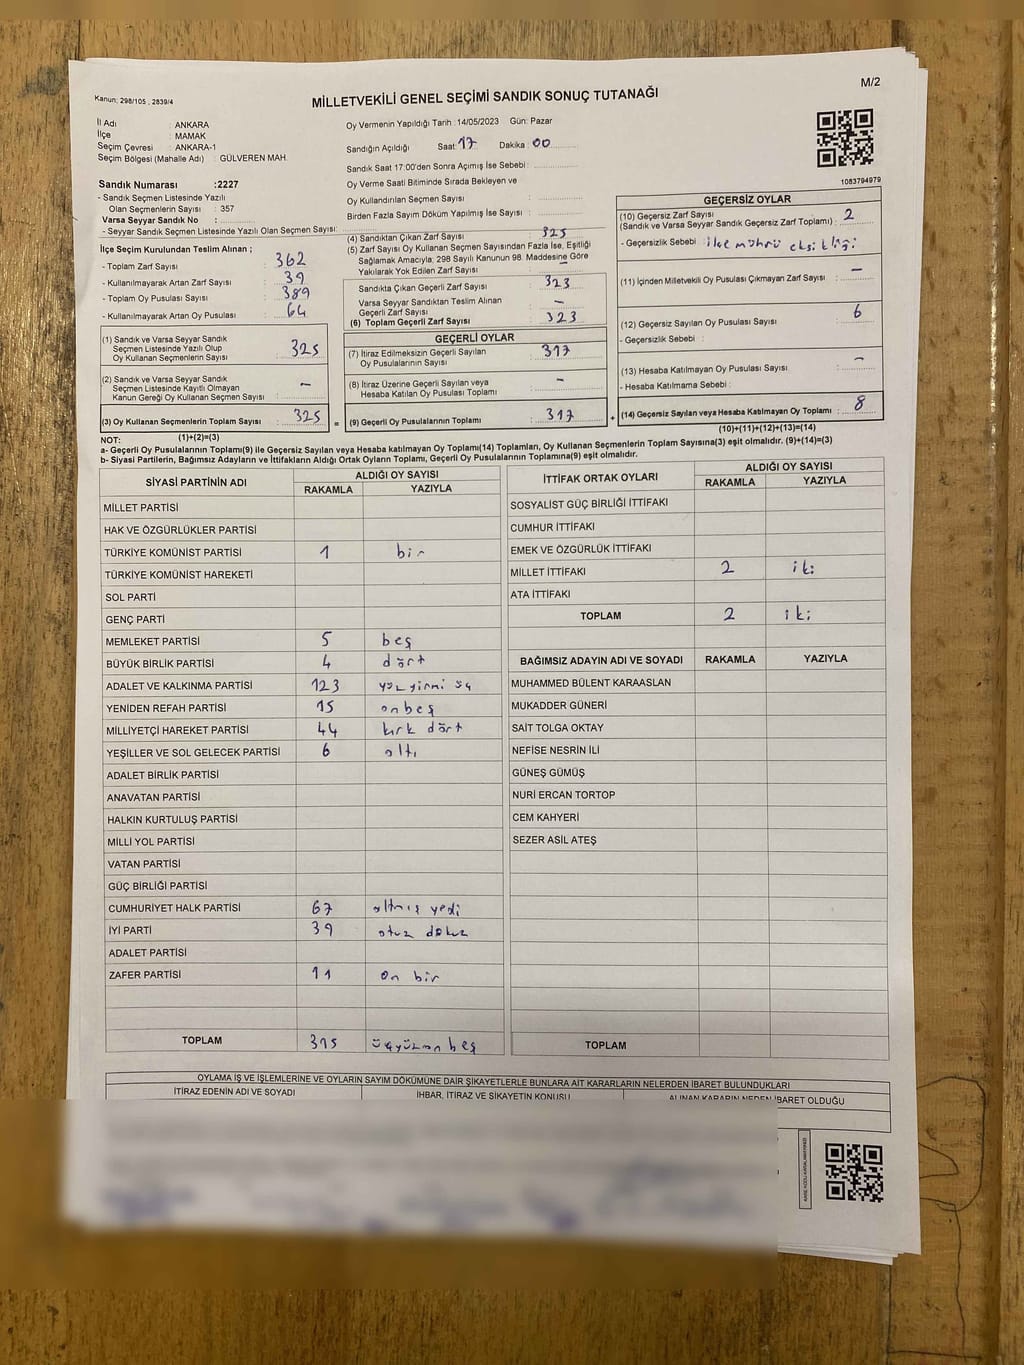 Kanun; 298/105 , 2839/4
M/2
MİLLETVEKİLİ GENEL SEÇİMİ SANDIK SONUÇ TUTANAĞI
İl Adı : ANKARA
İlçe : MAMAK
Seçim Çevresi : ANKARA-1
Seçim Bölgesi (Mahalle Adı) : GÜLVEREN MAH.
Sandık Numarası :2227
- Sandık Seçmen Listesinde Yazılı
Olan Seçmenlerin Sayısı : 357
Varsa Seyyar Sandık No :
- Seyyar Sandık Seçmen Listesinde Yazılı Olan Seçmen Sayısı:
İlçe Seçim Kurulundan Teslim Alınan ;
- Toplam Zarf Sayısı : 362
- Kullanılmayarak Artan Zarf Sayısı : 39
- Toplam Oy Pusulası Sayısı : 389
- Kullanılmayarak Artan Oy Pusulası : 64
(1) Sandık ve Varsa Seyyar Sandık
Seçmen Listesinde Yazılı Olup
Oy Kullanan Seçmenlerin Sayısı : 325
(2) Sandık ve Varsa Seyyar Sandık
Seçmen Listesinde Kayıtlı Olmayan
Kanun Gereği Oy Kullanan Seçmen Sayısı : –
(3) Oy Kullanan Seçmenlerin Toplam Sayısı : 325
(1)+(2)=(3)
Oy Vermenin Yapıldığı Tarih :14/05/2023 Gün: Pazar
Sandığın Açıldığı Saat: 17 Dakika: 00
Sandık Saat 17:00'den Sonra Açımış İse Sebebi :
Oy Verme Saati Bitiminde Sırada Bekleyen ve
Oy Kullandırılan Seçmen Sayısı :
Birden Fazla Sayım Döküm Yapılmış İse Sayısı :
(4) Sandıktan Çıkan Zarf Sayısı : 325
(5) Zarf Sayısı Oy Kullanan Seçmen Sayısından Fazla İse, Eşitliği
Sağlamak Amacıyla; 298 Sayılı Kanunun 98. Maddesine Göre
Yakılarak Yok Edilen Zarf Sayısı : –
Sandıkta Çıkan Geçerli Zarf Sayısı : 323
Varsa Seyyar Sandıktan Teslim Alınan
Geçerli Zarf Sayısı : –
(6) Toplam Geçerli Zarf Sayısı : 323
GEÇERLİ OYLAR
(7) İtiraz Edilmeksizin Geçerli Sayılan
Oy Pusulalarının Sayısı : 317
(8) İtiraz Üzerine Geçerli Sayılan veya
Hesaba Katılan Oy Pusulası Toplamı : –
= (9) Geçerli Oy Pusulalarının Toplamı : 317
1083794979
GEÇERSİZ OYLAR
(10) Geçersiz Zarf Sayısı
(Sandık ve Varsa Seyyar Sandık Geçersiz Zarf Toplamı) : 2
- Geçersizlik Sebebi : ilçe mührü eksikliği
(11) İçinden Milletvekili Oy Pusulası Çıkmayan Zarf Sayısı : –
(12) Geçersiz Sayılan Oy Pusulası Sayısı : 6
- Geçersizlik Sebebi :
(13) Hesaba Katılmayan Oy Pusulası Sayısı : –
- Hesaba Katılmama Sebebi :
+ (14) Geçersiz Sayılan veya Hesaba Katılmayan Oy Toplamı : 8
(10)+(11)+(12)+(13)=(14)
NOT:
a- Geçerli Oy Pusulalarının Toplamı(9) ile Geçersiz Sayılan veya Hesaba katılmayan Oy Toplamı(14) Toplamları, Oy Kullanan Seçmenlerin Toplam Sayısına(3) eşit olmalıdır. (9)+(14)=(3)
b- Siyasi Partilerin, Bağımsız Adayların ve İttifakların Aldığı Ortak Oyların Toplamı, Geçerli Oy Pusulalarının Toplamına(9) eşit olmalıdır.
SİYASİ PARTİNİN ADI ALDIĞI OY SAYISI
RAKAMLA YAZIYLA
MİLLET PARTİSİ
HAK VE ÖZGÜRLÜKLER PARTİSİ
TÜRKİYE KOMÜNİST PARTİSİ 1 bir
TÜRKİYE KOMÜNİST HAREKETİ
SOL PARTİ
GENÇ PARTİ
MEMLEKET PARTİSİ 5 beş
BÜYÜK BİRLİK PARTİSİ 4 dört
ADALET VE KALKINMA PARTİSİ 123 yüz yirmi üç
YENİDEN REFAH PARTİSİ 15 onbeş
MİLLİYETÇİ HAREKET PARTİSİ 44 kırk dört
YEŞİLLER VE SOL GELECEK PARTİSİ 6 altı
ADALET BİRLİK PARTİSİ
ANAVATAN PARTİSİ
HALKIN KURTULUŞ PARTİSİ
MİLLİ YOL PARTİSİ
VATAN PARTİSİ
GÜÇ BİRLİĞİ PARTİSİ
CUMHURİYET HALK PARTİSİ 67 altmış yedi
İYİ PARTİ 39 otuz dokuz
ADALET PARTİSİ
ZAFER PARTİSİ 11 on bir
TOPLAM 315 üçyüzon beş
İTTİFAK ORTAK OYLARI ALDIĞI OY SAYISI
RAKAMLA YAZIYLA
SOSYALİST GÜÇ BİRLİĞİ İTTİFAKI
CUMHUR İTTİFAKI
EMEK VE ÖZGÜRLÜK İTTİFAKI
MİLLET İTTİFAKI 2 iki
ATA İTTİFAKI
TOPLAM 2 iki
BAĞIMSIZ ADAYIN ADI VE SOYADI RAKAMLA YAZIYLA
MUHAMMED BÜLENT KARAASLAN
MUKADDER GÜNERİ
SAİT TOLGA OKTAY
NEFİSE NESRİN İLİ
GÜNEŞ GÜMÜŞ
NURİ ERCAN TORTOP
CEM KAHYERİ
SEZER ASİL ATEŞ
TOPLAM
OYLAMA İŞ VE İŞLEMLERİNE VE OYLARIN SAYIM DÖKÜMÜNE DAİR ŞİKAYETLERLE BUNLARA AİT KARARLARIN NELERDEN İBARET BULUNDUKLARI
İTİRAZ EDENİN ADI VE SOYADI İHBAR, İTİRAZ VE ŞİKAYETİN KONUSU ALINAN KARARIN NEDEN İBARET OLDUĞU